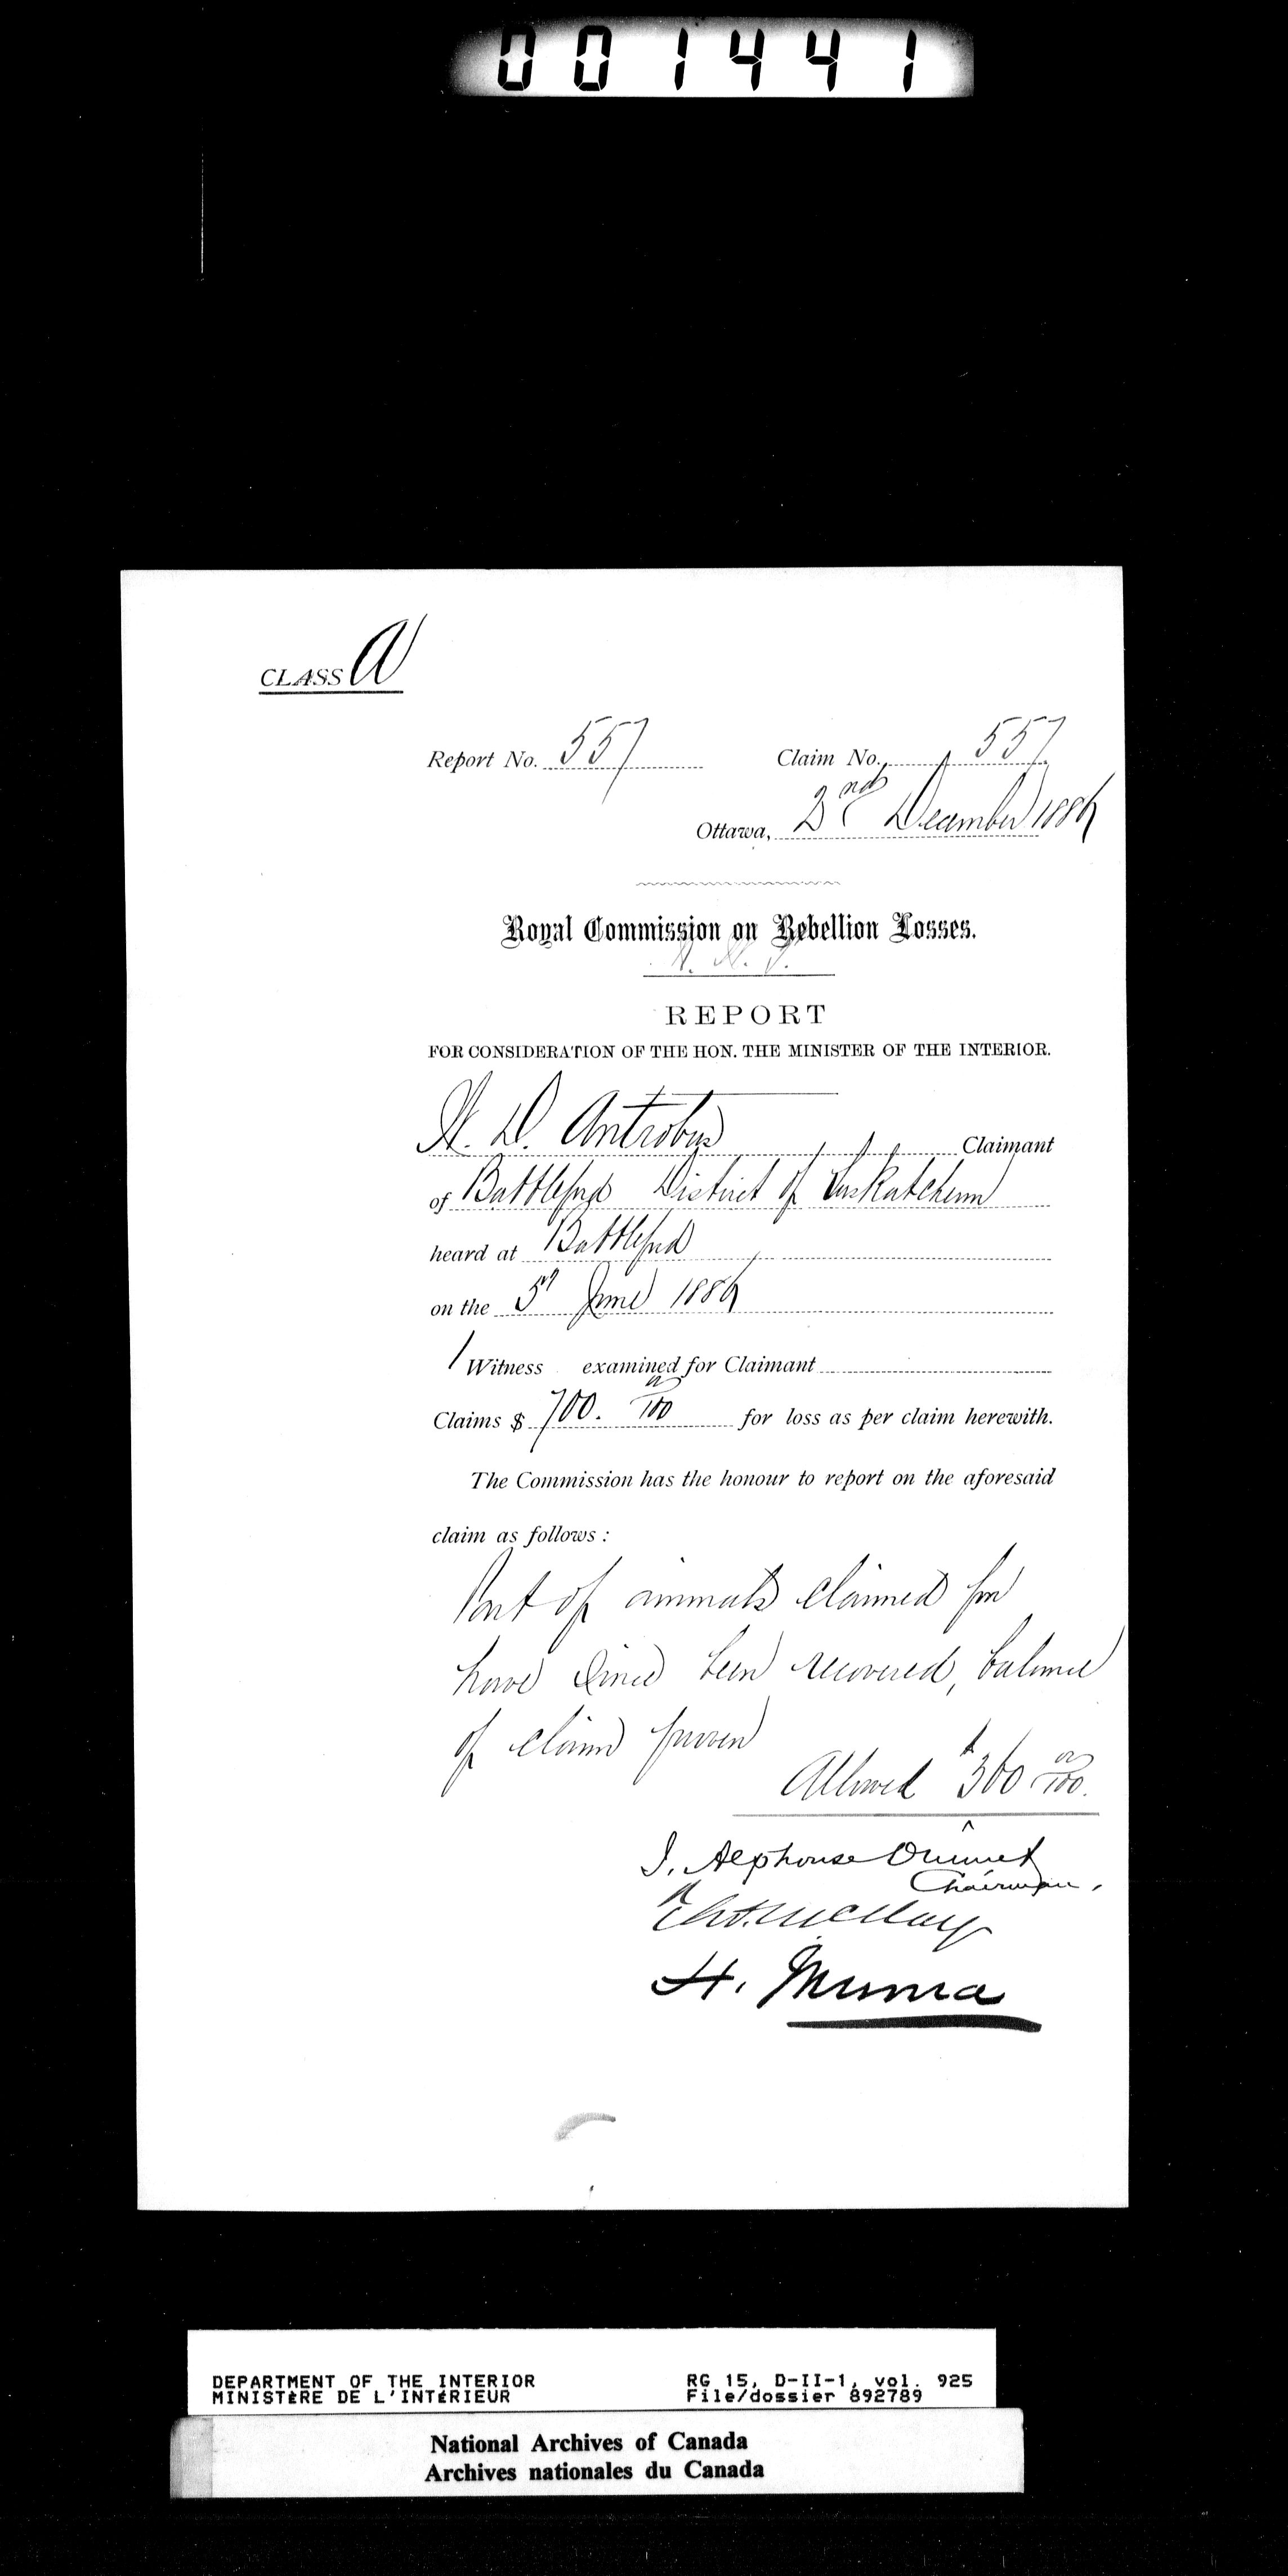 001441
CLASS A
Report No. 557 Claim No. 557
Ottawa, 2nd December 1886
Royal Commission on Rebellion Losses.
REPORT
FOR CONSIDERATION OF THE HON. THE MINISTER OF THE INTERIOR.
W. D. Antrobus Claimant
of Battleford District of Saskatchewan
heard at Battleford
on the 5th June 1886
1 Witness examined for Claimant
Claims $ 700. 00/100 for loss as per claim herewith.
The Commission has the honour to report on the aforesaid
claim as follows :
Part of animals claimed for
have since been recovered, balance
of claim proven
Allowed $360 00/100.
J. Alphonse Ouimet
Chairman,
H. Muma
DEPARTMENT OF THE INTERIOR RG 15, D-II-1, vol. 925
MINISTÈRE DE L'INTÉRIEUR File/dossier 892789
National Archives of Canada
Archives nationales du Canada